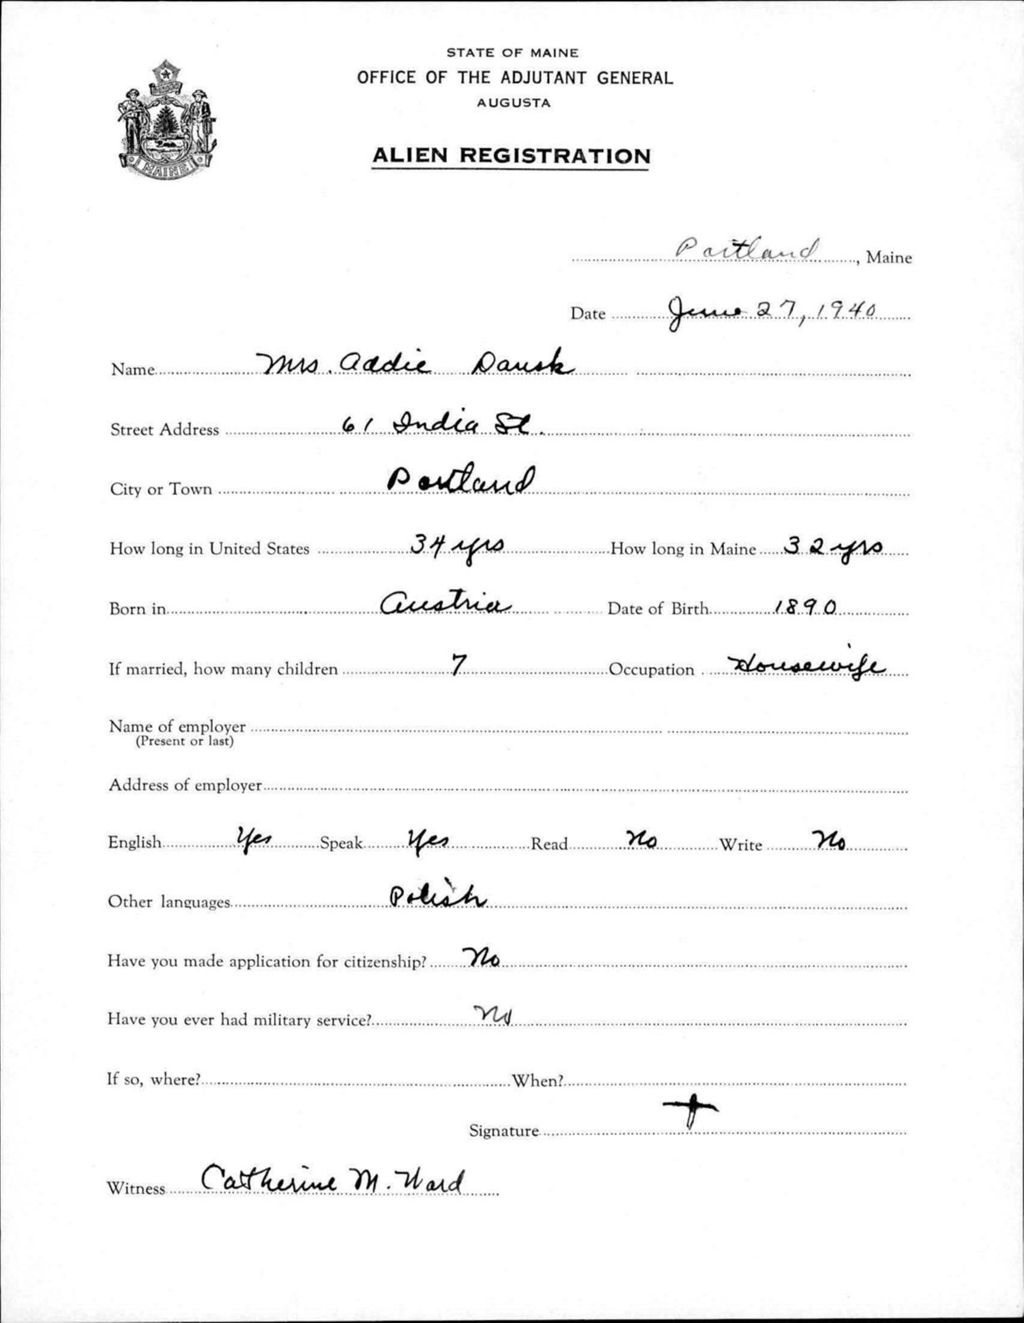 STATE OF MAINE
OFFICE OF THE ADJUTANT GENERAL
AUGUSTA
ALIEN REGISTRATION
MAINE
Portland, Maine
Date June 27, 1940
Name Mrs. Addie Dansk
Street Address 61 India St.
City or Town Portland
How long in United States 34 yrs How long in Maine 32 yrs
Born in Austria Date of Birth 1890
If married, how many children 7 Occupation Housewife
Name of employer
(Present or last)
Address of employer
English Yes Speak Yes Read No Write No
Other languages Polish
Have you made application for citizenship? No
Have you ever had military service? No
If so, where? When?
Signature +
Witness Catherine M. Ward